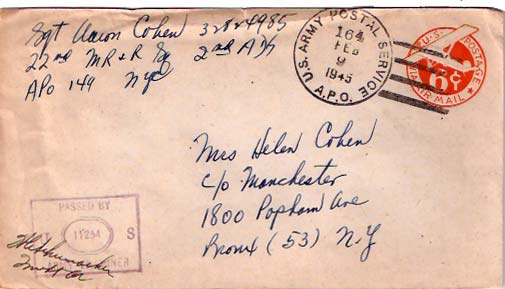 Sgt Aaron Cohen 32824985
22nd MR & R Sq 2nd AD
APO 149 NYC
U.S. ARMY POSTAL SERVICE
164
FEB
9
1945
A.P.O.
U.S. POSTAGE
6¢
AIR MAIL
Mrs Helen Cohen
c/o Manchester
1800 Popham Ave
Bronx (53) N.Y
PASSED BY
11254 S